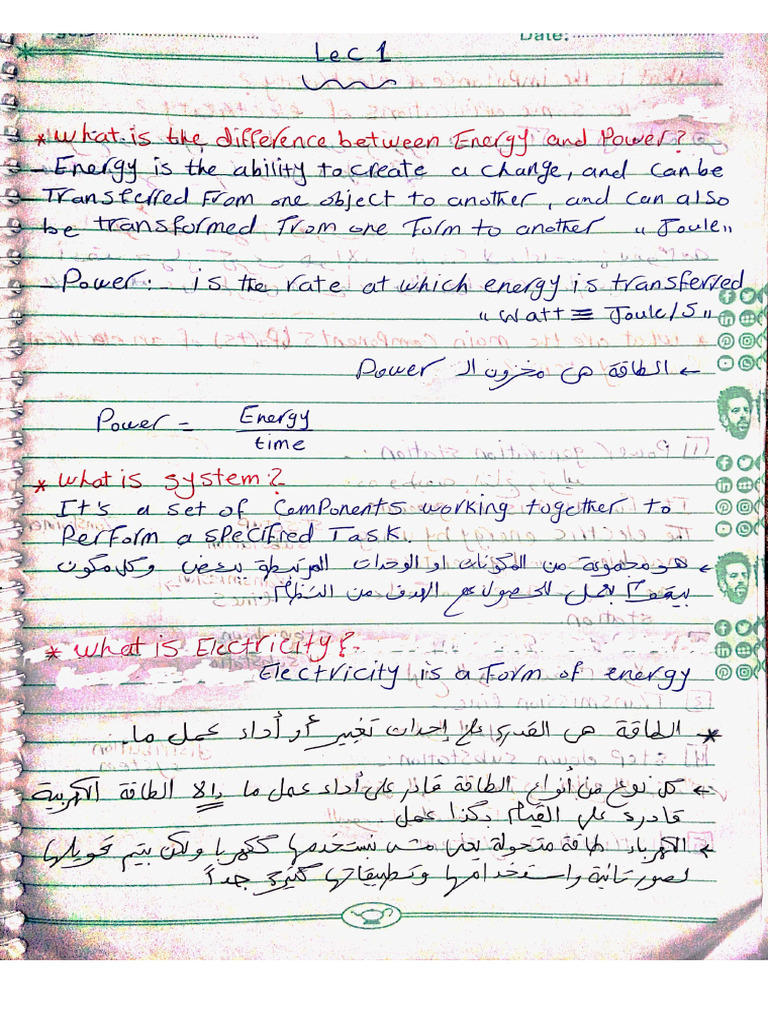 Date:
Lec 1
* What is the difference between Energy and Power?
- Energy is the ability to create a change, and can be
Transferred from one object to another, and can also
be transformed from one form to another "Joule"
- Power:- is the rate at which energy is transferred
"Watt ≡ Joule/s"
← الطاقة هى مخزون الـ Power
Power = Energy / time
* What is system?
It's a set of components working together to
Perform a specified Task.
هو مجموعة من المكونات او الوحدات المرتبطة ببعض وكل مكون
بيقوم بعمل للحصول على الهدف من النظام
* What is Electricity?
Electricity is a form of energy
* الطاقة هى القدرة على إحداث تغيير أو أداء عمل ما.
← كل نوع من أنواع الطاقة قادر على أداء عمل ما إلا الطاقة الكهربية
قادرة على القيام بكذا عمل.
الكهرباء طاقة متحولة يعنى مش بنستخدمها ككهربا ولكن بيتم تحويلها
لصور تانية واستخدامها وتطبيقاتها كثيرة جداً